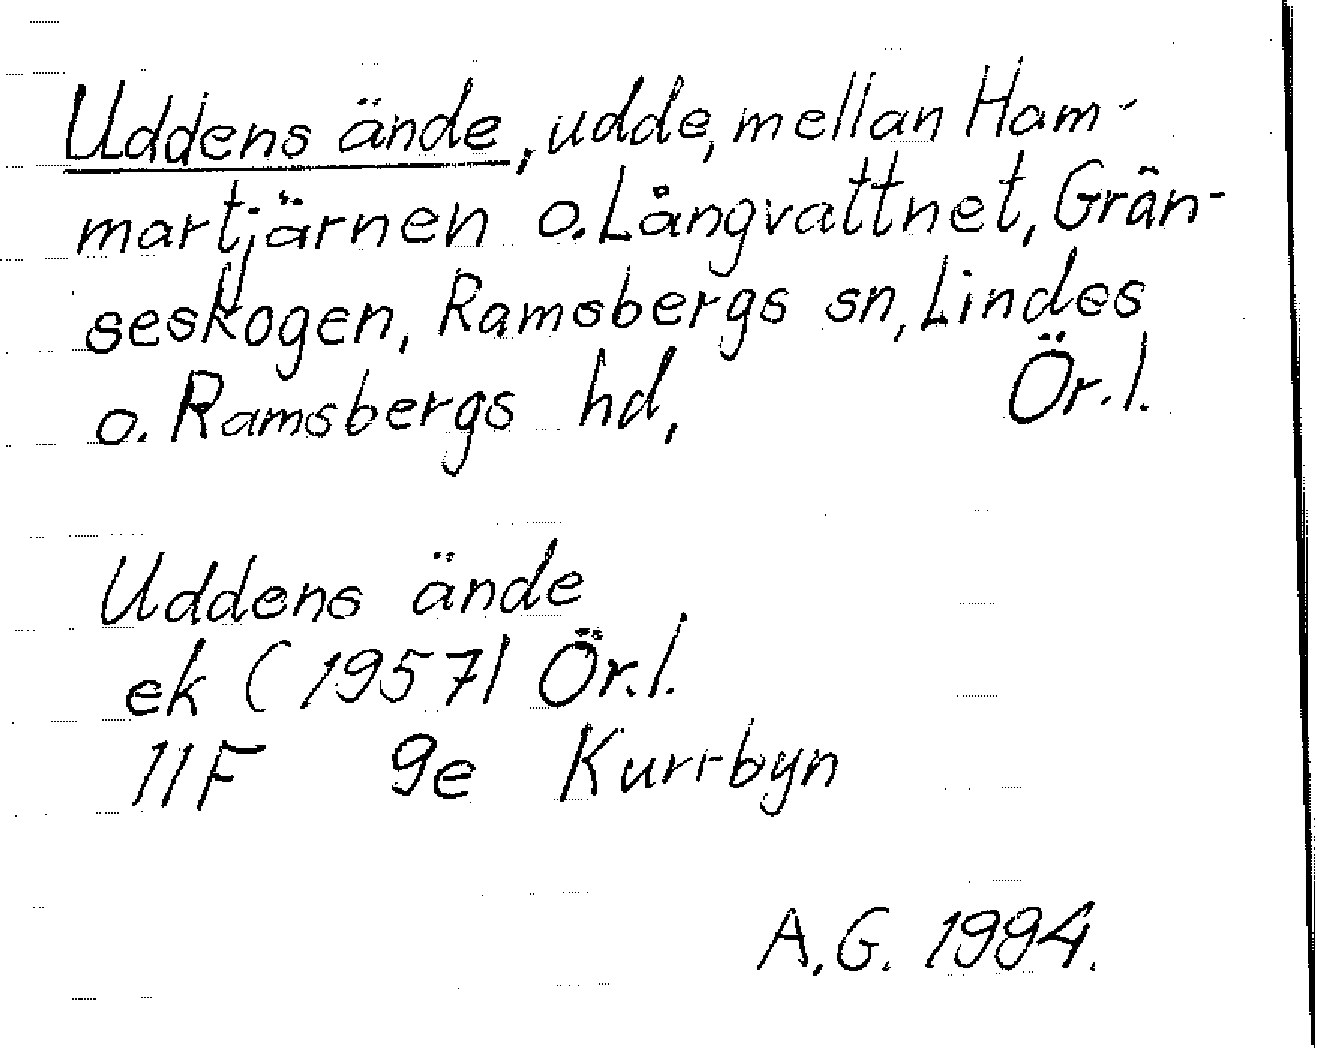 Uddens ände, udde, mellan Ham-
martjärnen o. Långvattnet, Grän-
seskogen, Ramsbergs sn, Lindes
o. Ramsbergs hd, Ör.l.
Uddens ände
ek (1957) Ör.l.
11F 9e Kurrbyn
A.G. 1994.